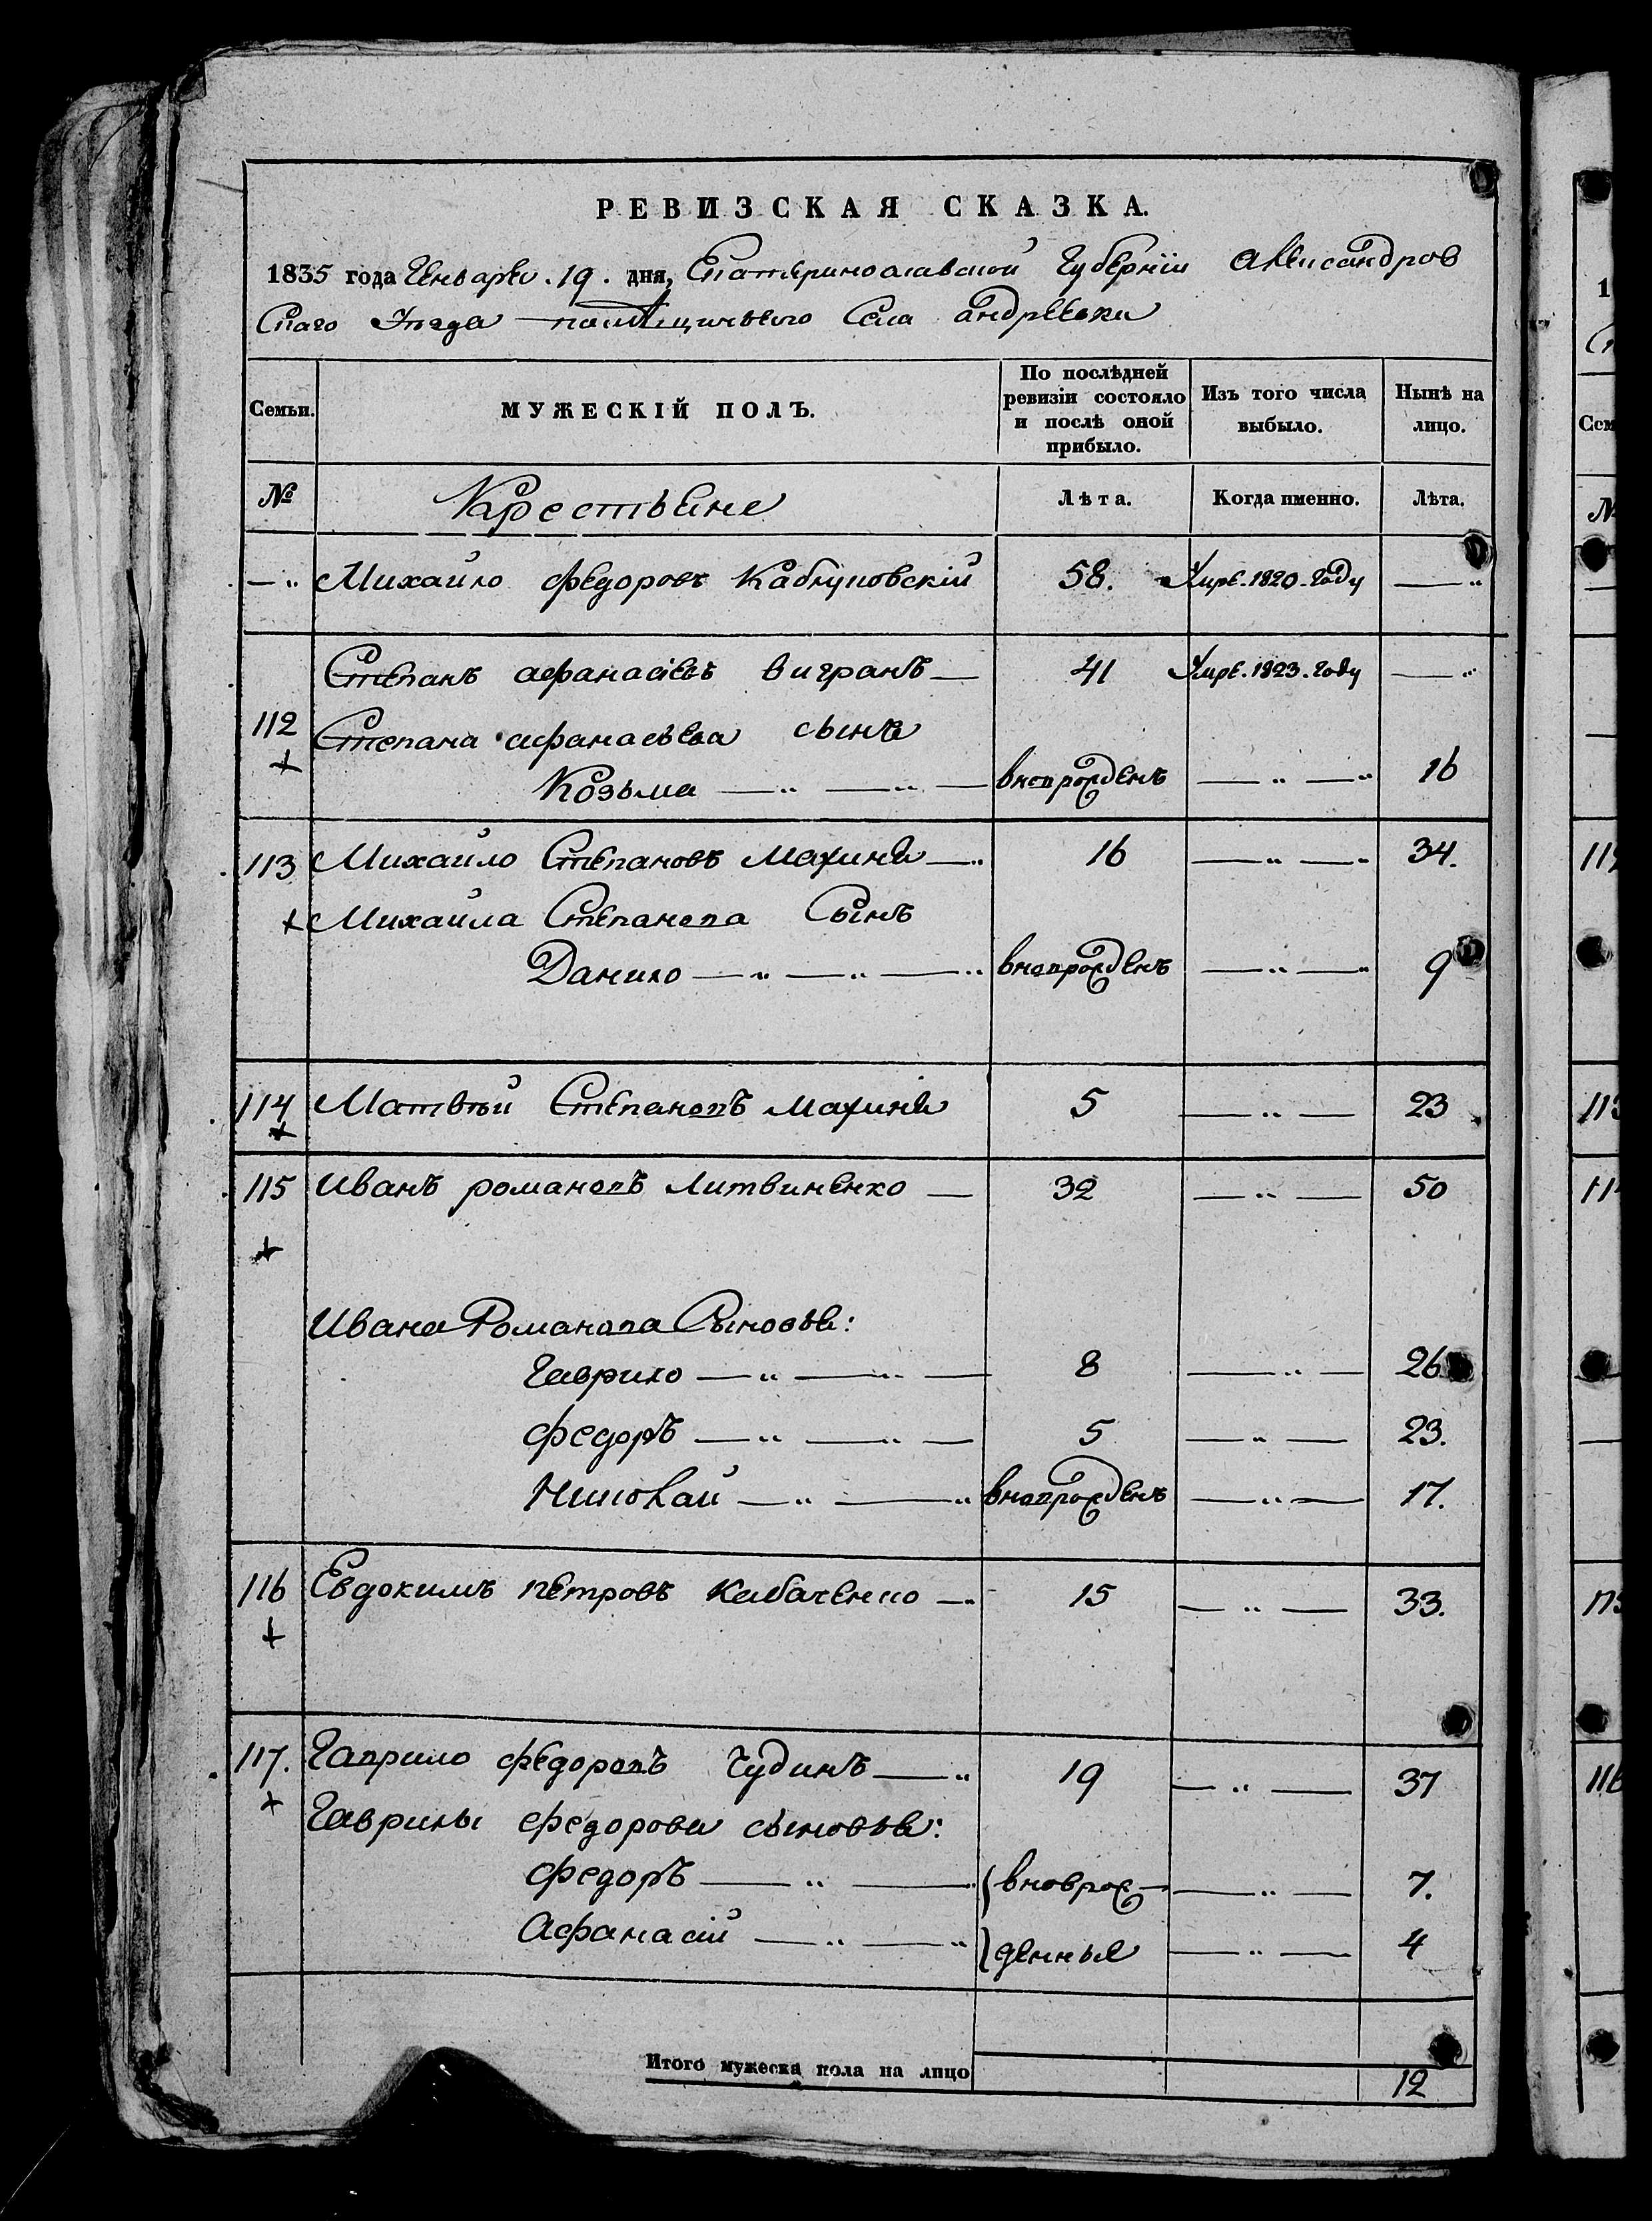 РЕВИЗСКАЯ СКАЗКА.
1835 года Генваря . 19 . дня, Екатеринославской Губернiи Александров
Скаго Уѣзда помѣщичьяго Села Андреевки
Семьи.
МУЖЕСКІЙ ПОЛЪ.
По послѣдней ревизіи состояло и послѣ оной прибыло.
Изъ того числа выбыло.
Нынѣ на лицо.
№
Крестьяне
Лѣта.
Когда именно.
Лѣта.
— „ Михайло Федоровъ 58. Умре. 1820. году — „
Степанъ Афанасіевъ Вигранъ — 41 Умре. 1823. году — „
112 Степана Афанасьева сынъ
Козьма — „ — „ — вновьрожденъ — „ — „ 16
113 Михайло Степановъ Махиня — „ 16 — „ — „ 34.
Михайла Степанова Сынъ
Данило — „ — „ — „ вновьрожденъ — „ — „ 9
114 Матвѣй Степановъ Махиня 5 — „ — 23
115 Иванъ Романовъ Литвиненко — 32 — „ — 50
Ивана Романова Сыновья:
Гаврило — „ — „ — 8 — „ — 26
Федоръ — „ — „ — 5 — „ — 23.
Николай — „ — „ вновьрожденъ — „ — 17.
116 Евдокимъ Петровъ Кабаченко — „ 15 — „ — 33.
117. Гаврило Федоровъ Чудинъ — „ 19 — „ — 37
Гаврилы Федорова сыновья:
Федоръ — „ — вноврож- — „ — 7.
Афанасій — „ — „ денные — „ — 4
Итого мужеска пола на лицо 12